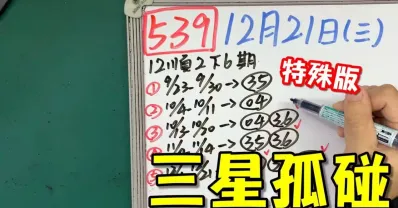 539 12月21日(三)
12順2下6期
特殊版
① 9/23-9/30→35
② 10/4-10/11→04
③ 10/13-10/20→04 36
35 36
三星孤碰